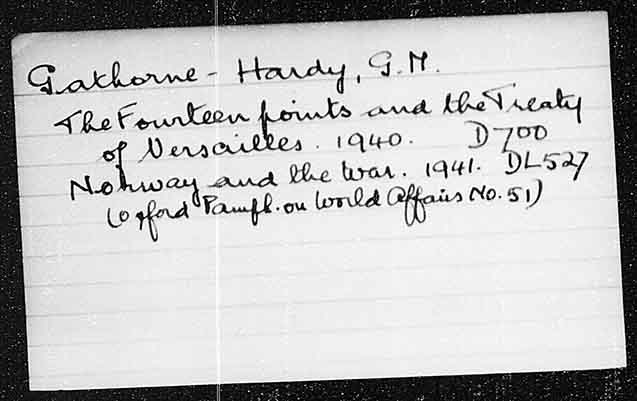 Gathorne-Hardy, G.M.
The Fourteen points and the Treaty
of Versailles. 1940. D700
Norway and the War. 1941. DL527
(Oxford Pamph. on World Affairs No. 51)